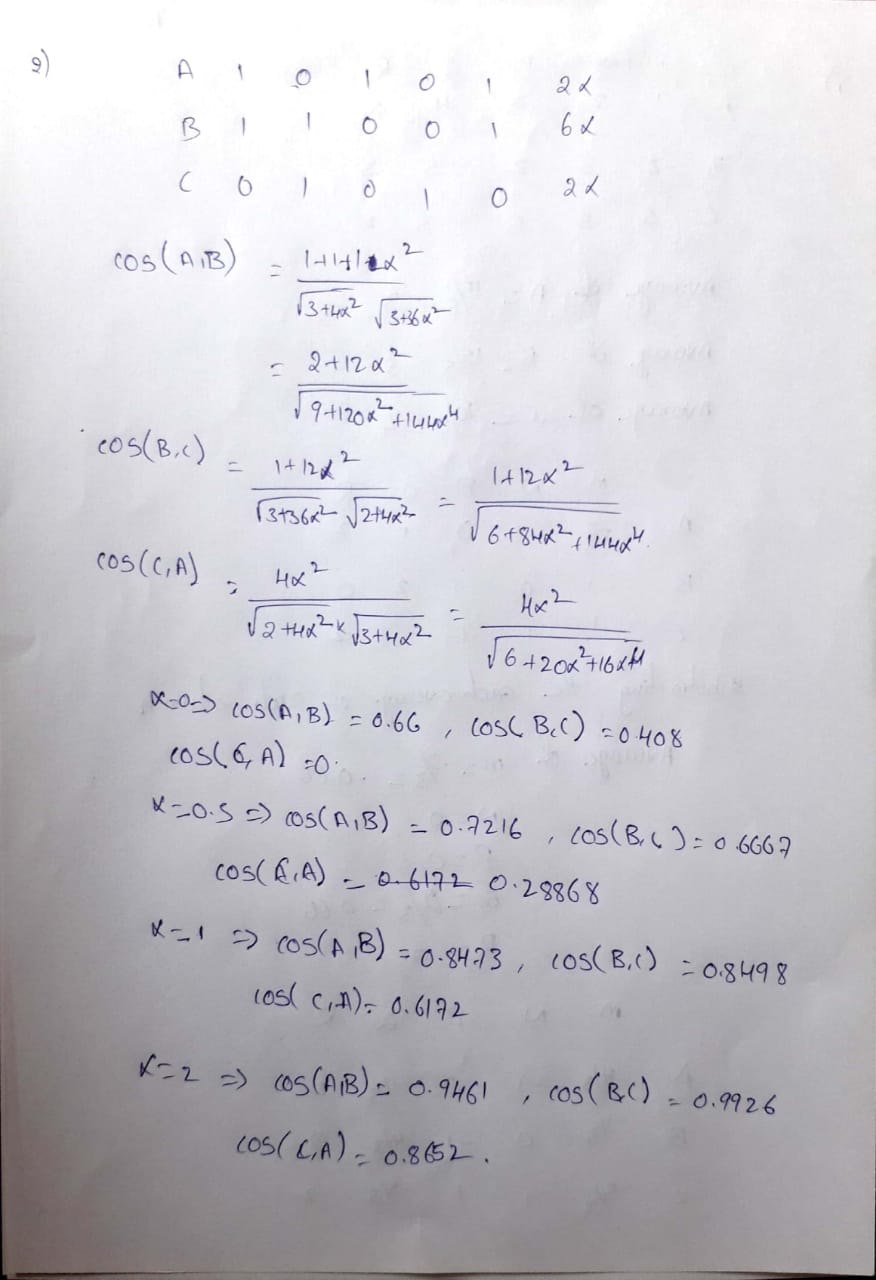 2) A 1 0 1 0 1 2α
B 1 1 0 0 1 6α
C 0 1 0 1 0 2α
cos(A,B) = 1+1+12α² / √3+4α² √3+36α²
= 2+12α² / √9+120α²+144α⁴
cos(B,C) = 1+12α² / √3+36α² √2+4α² = 1+12α² / √6+84α²+144α⁴
cos(C,A) = 4α² / √2+4α² × √3+4α² = 4α² / √6+20α²+16α⁴
α=0=> cos(A,B) = 0.66 , cos(B,C) = 0.408
cos(C,A) =0.
α=0.5 => cos(A,B) = 0.7216 , cos(B,C) = 0.6667
cos(C,A) = 0.6172 0.28868
α=1 => cos(A,B) = 0.8473 , cos(B,C) = 0.8498
cos(C,A) = 0.6172
α=2 => cos(A,B) = 0.9461 , cos(B,C) = 0.9926
cos(C,A) = 0.8652.